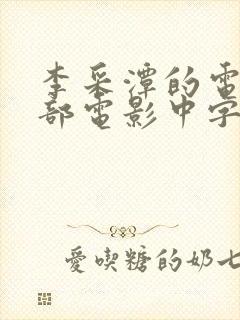 李采潭的電
部電影中字
愛喫糖的奶七